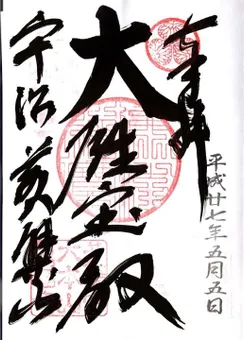 奉拝
平成廿七年五月五日
大雄宝殿
宇治 黄檗山